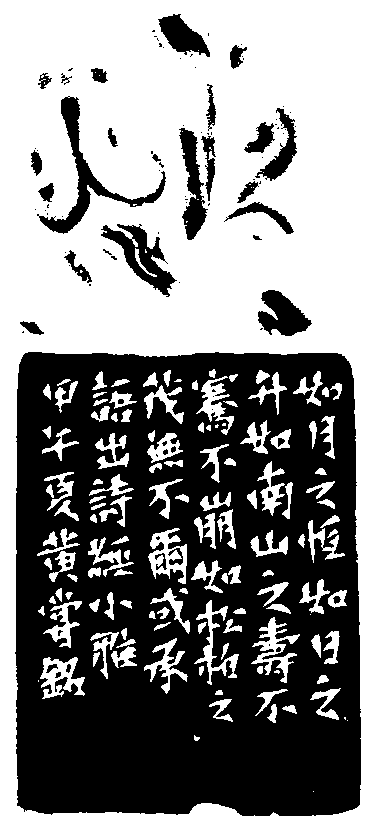 如月之恒如日之
升如南山之壽不
騫不崩如松柏之
茂無不爾或承
語出詩經小雅
甲午夏黄嘗銘